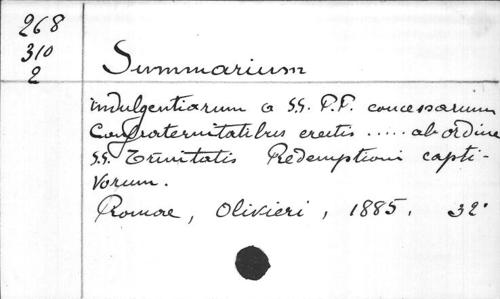 268
310
2
Summarium
indulgentiarum a SS. P.P. concessarum
Confraternitatibus erectis ..... ab ordine
SS. Trinitatis Redemptioni capti-
vorum.
Romae, Olivieri, 1885. 32°